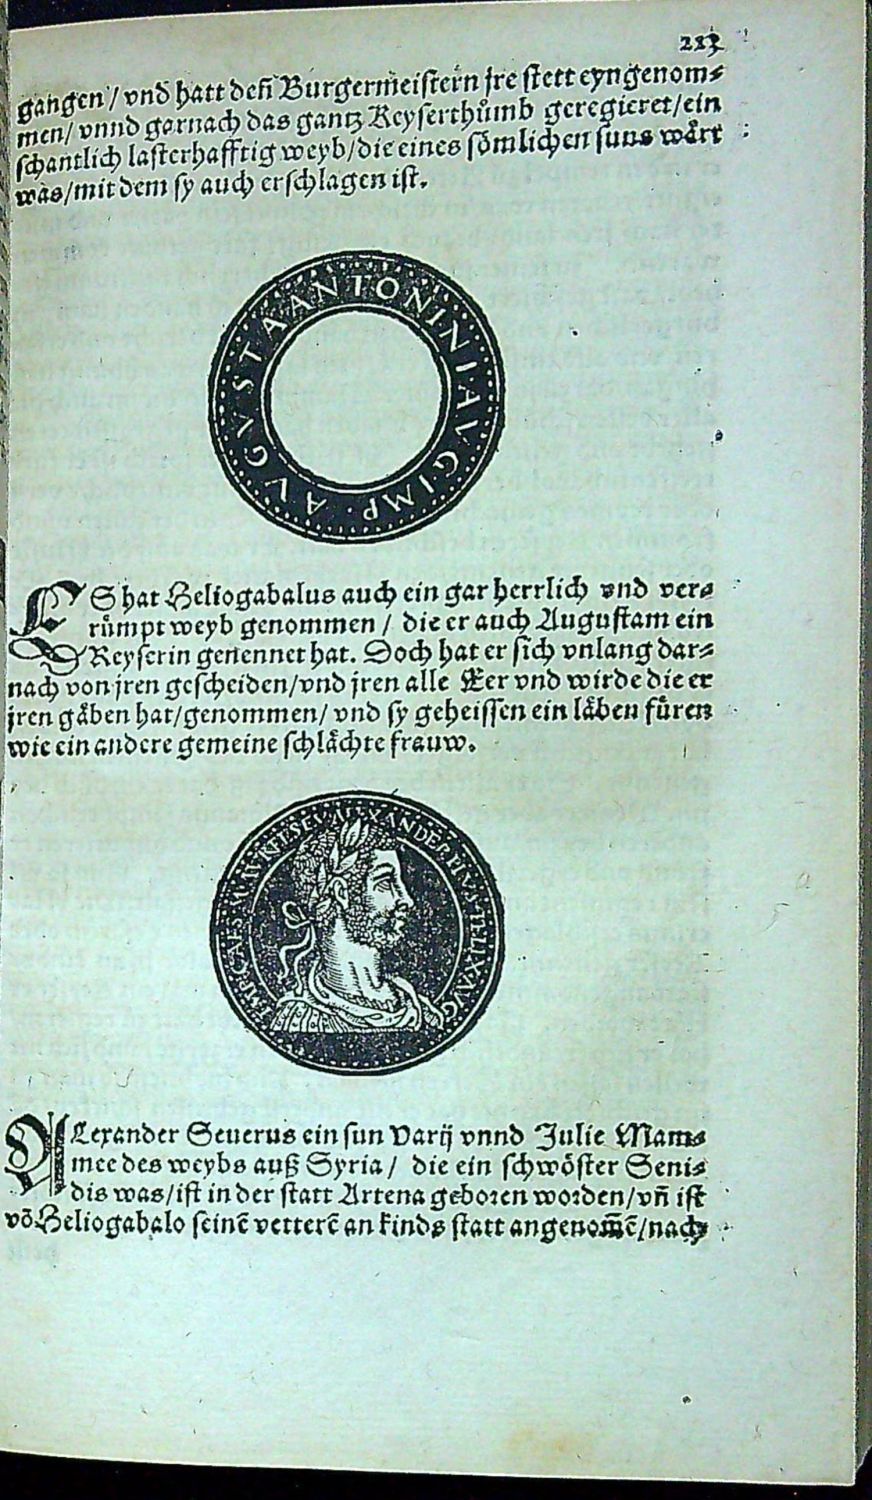 213
gangen/ vnd hatt deñ Burgermeistern jre stett eyngenom⸗
men/ vnnd garnach das gantz Keyserthůmb geregieret/ein
schantlich lasterhafftig weyb/die eines sömlichen suns wärt
was/mit dem sy auch erschlagen ist.
AVGVSTA ANTONINI AVG IMP.
ES hat Heliogabalus auch ein gar herrlich vnd ver⸗
růmpt weyb genommen / die er auch Augustam ein
Keyserin genennet hat. Doch hat er sich vnlang dar⸗
nach von jren gescheiden/vnd jren alle Eer vnd wirde die er
jren gäben hat/genommen/ vnd sy geheissen ein läben fůren
wie ein andere gemeine schlächte frauw.
IMP. CAES. M. AVREL SEV ALEXANDER PIVS FELIX AVG
ALexander Seuerus ein sun Varij vnnd Julie Mam⸗
mee des weybs auß Syria / die ein schwöster Seni⸗
dis was/ist in der statt Artena geboren worden/vñ ist
võ Heliogabalo seinē vetterē an kinds statt angenom̄ē/nach